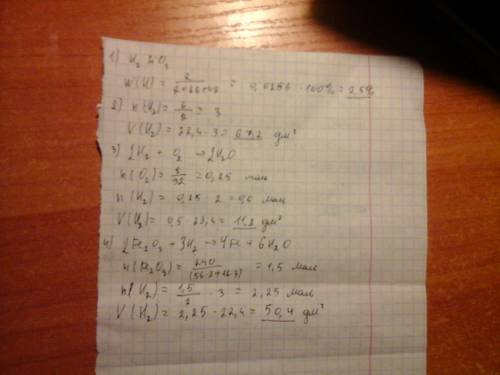 1) H₂SiO₃
w(H) = 2/(2+28+48) = 0,0256 · 100% = 2,5%
2) n(H₂) = 6/2 = 3
V(H₂) = 22,4 · 3 = 67,2 дм³
3) 2H₂ + O₂ → 2H₂O
n(O₂) = 8/32 = 0,25 моль
n(H₂) = 0,25 · 2 = 0,5 моль
V(H₂) = 0,5 · 22,4 = 11,2 дм³
4) 2Fe₂O₃ + 3H₂ → 4Fe + 6H₂O
n(Fe₂O₃) = 240/(56·2+16·3) = 1,5 моль
n(H₂) = 1,5/2 · 3 = 2,25 моль
V(H₂) = 2,25 · 22,4 = 50,4 дм³